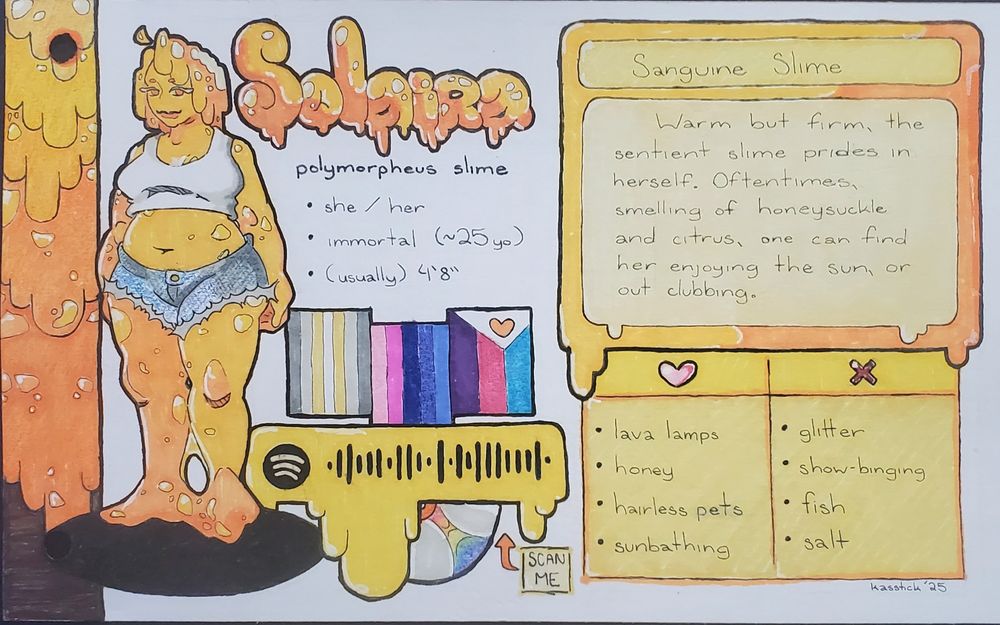 Solaire
polymorpheus slime
• she / her
• immortal (~25 yo)
• (usually) 4'8"
SCAN
ME
Sanguine Slime
Warm but firm, the
sentient slime prides in
herself. Oftentimes,
smelling of honeysuckle
and citrus, one can find
her enjoying the sun, or
out clubbing.
• lava lamps
• honey
• hairless pets
• sunbathing
• glitter
• show-binging
• fish
• salt
kasstick '25